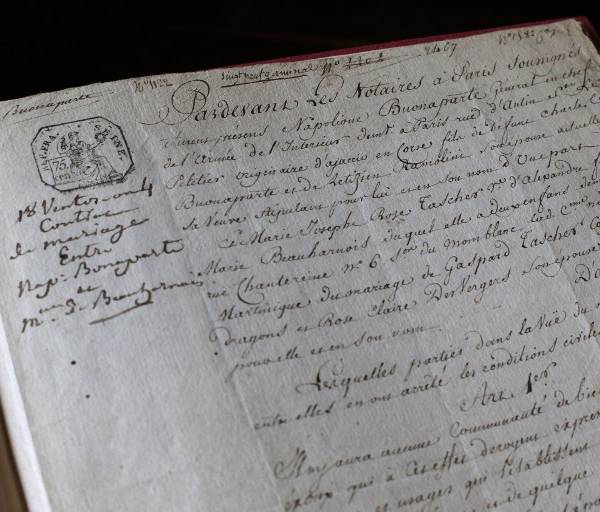 Buonaparte
vingt neuf germinal
2467
Pardevant Les Notaires à Paris soussignés
furent présens Napolione Buonaparte Général en chef
de l'Armée de l'Interieur demt à Paris rue d'Antin
Pelitier originaire d'ajaccio en Corse fils de defunt Charles
Buonaparte et de Letizia Ramolini son épouse actuelle
sa Veuve stipulant pour lui et en son nom d'Une part
Ce Marie Joseph Rose Tascher Ve d'Alexandre
Marie Beauharnois duquel elle a deux enfans
rue Chantereine no 6. son du Montblanc
Martinique du mariage de Gaspard Tascher
Dragons et Rose Claire DesVergers son épouse
pour elle et en son nom
Lesquelles parties dans la Vuë du
entr elles en ont arrêté les conditions civiles
Art 1er
Il n'y aura aucune Communauté de
époux qui à cet effet derogent
et usages qui l'établissent
et de quelque
75
18 Ventos an 4
Contrat
de mariage
Entre
Napn Bonaparte
et
Me De Beauharnais